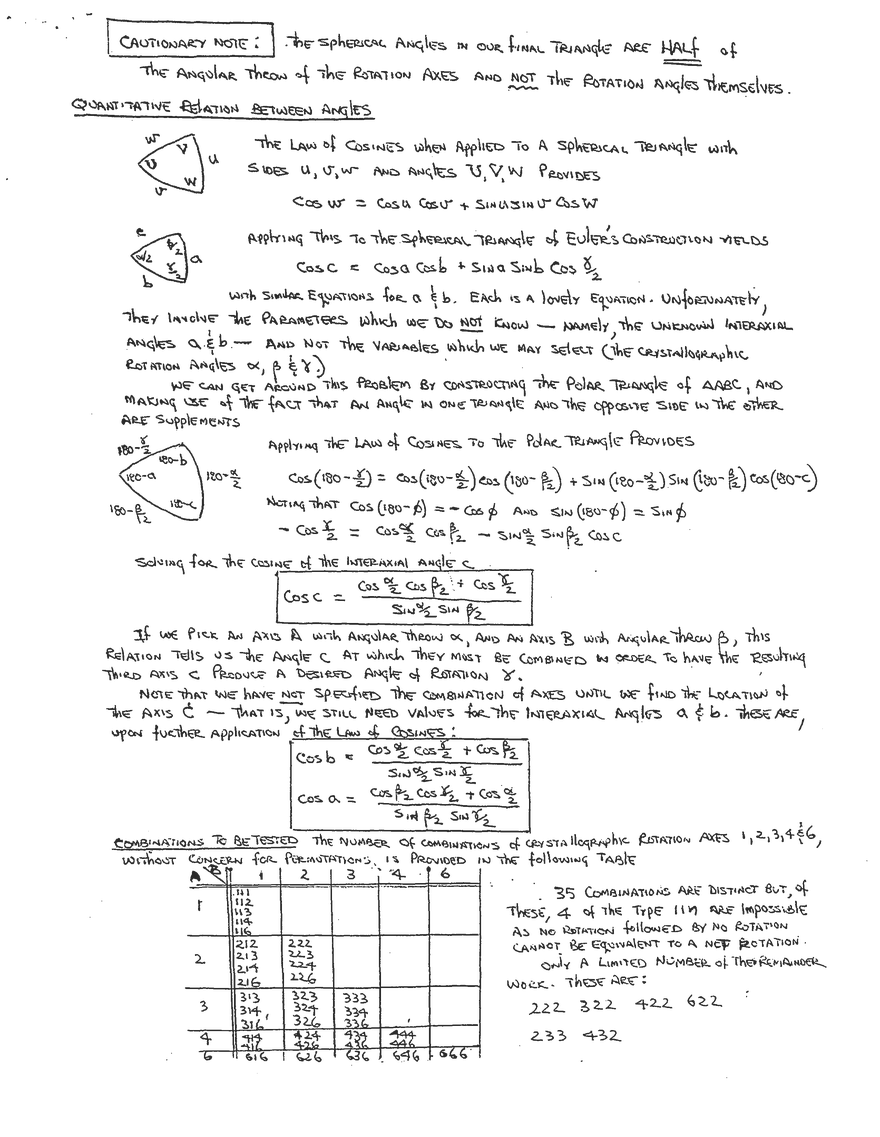 CAUTIONARY NOTE: THE SPHERICAL ANGLES IN OUR FINAL TRIANGLE ARE HALF OF
THE ANGULAR THROW OF THE ROTATION AXES AND NOT THE ROTATION ANGLES THEMSELVES.
QUANTITATIVE RELATION BETWEEN ANGLES
W V U U W V
THE LAW OF COSINES WHEN APPLIED TO A SPHERICAL TRIANGLE WITH
SIDES U, V, W AND ANGLES U, V, W PROVIDES
COS W = COS U COS V + SIN U SIN V COS W
c β/2 α/2 a γ/2 b
APPLYING THIS TO THE SPHERICAL TRIANGLE OF EULER'S CONSTRUCTION YIELDS
COS C = COS a COS b + SIN a SIN b COS γ/2
WITH SIMILAR EQUATIONS FOR a & b. EACH IS A LOVELY EQUATION. UNFORTUNATELY,
THEY INVOLVE THE PARAMETERS WHICH WE DO NOT KNOW — NAMELY, THE UNKNOWN INTERAXIAL
ANGLES a & b — AND NOT THE VARIABLES WHICH WE MAY SELECT (THE CRYSTALLOGRAPHIC
ROTATION ANGLES α, β & γ.)
WE CAN GET AROUND THIS PROBLEM BY CONSTRUCTING THE POLAR TRIANGLE OF ΔABC, AND
MAKING USE OF THE FACT THAT AN ANGLE IN ONE TRIANGLE AND THE OPPOSITE SIDE IN THE OTHER
ARE SUPPLEMENTS
180-γ/2 180-b 180-a 180-α/2 180-β/2 180-c
APPLYING THE LAW OF COSINES TO THE POLAR TRIANGLE PROVIDES
COS(180-γ/2) = COS(180-α/2) COS(180-β/2) + SIN(180-α/2) SIN(180-β/2) COS(180-C)
NOTING THAT COS(180-φ) = - COS φ AND SIN(180-φ) = SIN φ
- COS γ/2 = COS α/2 COS β/2 - SIN α/2 SIN β/2 COS C
SOLVING FOR THE COSINE OF THE INTERAXIAL ANGLE C
COS C = (COS α/2 COS β/2 + COS γ/2) / (SIN α/2 SIN β/2)
IF WE PICK AN AXIS A WITH ANGULAR THROW α, AND AN AXIS B WITH ANGULAR THROW β, THIS
RELATION TELLS US THE ANGLE C AT WHICH THEY MUST BE COMBINED IN ORDER TO HAVE THE RESULTING
THIRD AXIS C PRODUCE A DESIRED ANGLE OF ROTATION γ.
NOTE THAT WE HAVE NOT SPECIFIED THE COMBINATION OF AXES UNTIL WE FIND THE LOCATION OF
THE AXIS C — THAT IS, WE STILL NEED VALUES FOR THE INTERAXIAL ANGLES a & b. THESE ARE,
UPON FURTHER APPLICATION OF THE LAW OF COSINES:
COS b = (COS α/2 COS γ/2 + COS β/2) / (SIN α/2 SIN γ/2)
COS a = (COS β/2 COS γ/2 + COS α/2) / (SIN β/2 SIN γ/2)
COMBINATIONS TO BE TESTED THE NUMBER OF COMBINATIONS OF CRYSTALLOGRAPHIC ROTATION AXES 1, 2, 3, 4 & 6,
WITHOUT CONCERN FOR PERMUTATIONS, IS PROVIDED IN THE FOLLOWING TABLE
A B 1 2 3 4 6
1
111
112
113
114
116
2
212 222
213 223
214 224
216 226
3
313 323 333
314 324 334
316 326 336
4
414 424 434 444
416 426 436 446
6 616 626 636 646 666
35 COMBINATIONS ARE DISTINCT BUT, OF
THESE, 4 OF THE TYPE 11n ARE IMPOSSIBLE
AS NO ROTATION FOLLOWED BY NO ROTATION
CANNOT BE EQUIVALENT TO A NET ROTATION.
ONLY A LIMITED NUMBER OF THE REMAINDER
WORK. THESE ARE:
222 322 422 622
233 432